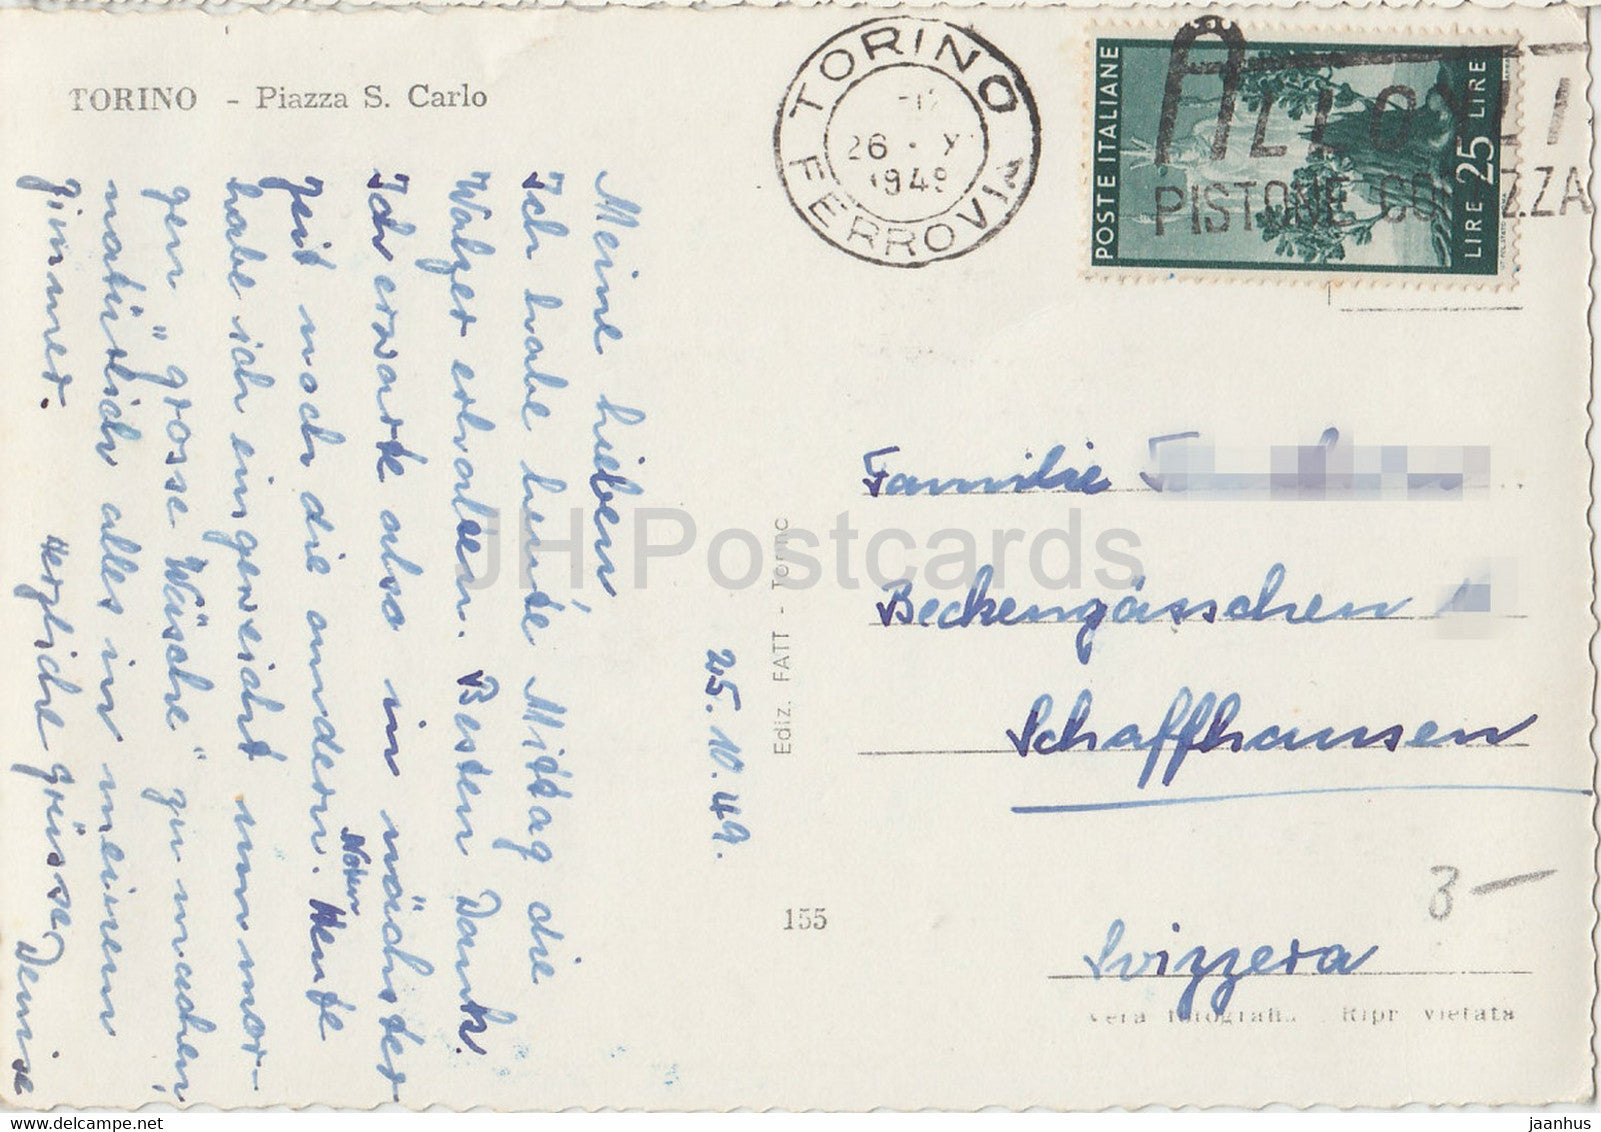 TORINO - Piazza S. Carlo
Meine lieben,
Ich habe heute Mittag die
Walzer erhalten. Besten Dank.
Ich erwarte also in nächster
Zeit noch die andern Noten. Heute
habe ich eingeweicht um mor-
gen "grosse Wäsche" zu machen,
natürlich alles in meinem
Zimmer.
Herzliche Grüsse, Denise
25.10.49.
Ediz. FATT - Torino
155
TORINO
26 . X
1949
FERROVIA
POSTE ITALIANE
LIRE 25 LIRE
PISTONE
Familie
Beckengässchen
Schaffhausen
Svizzera
3 -
Vera fotografia Ripr. vietata
JH Postcards
www.delcampe.net
jaanhus